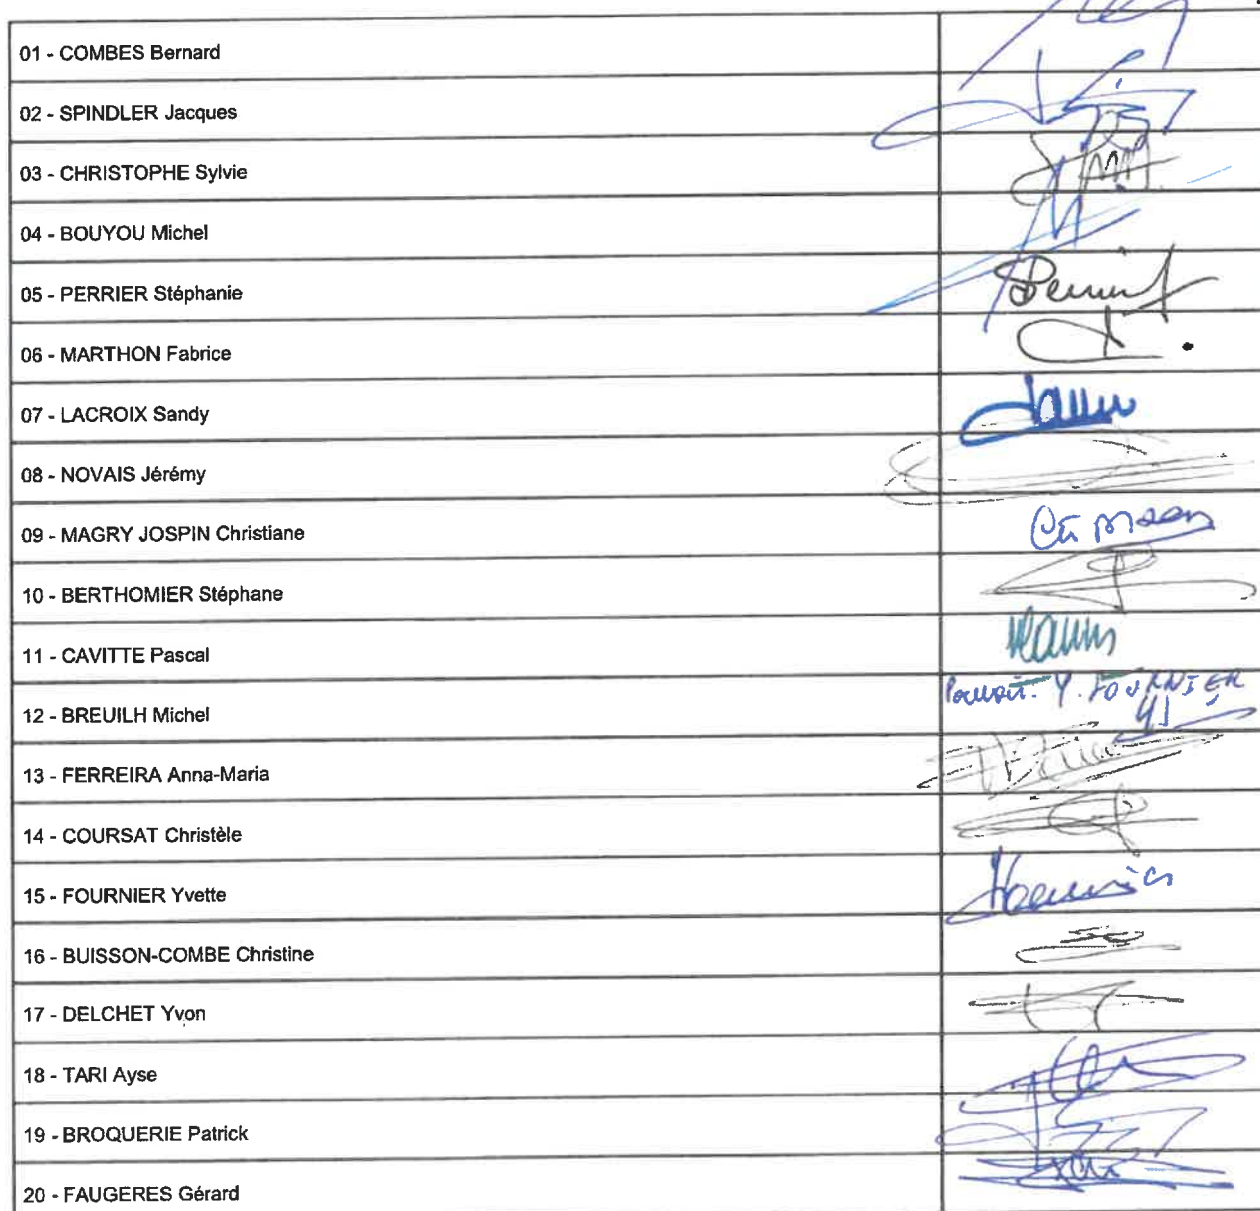 01 - COMBES Bernard
02 - SPINDLER Jacques
03 - CHRISTOPHE Sylvie
04 - BOUYOU Michel
05 - PERRIER Stéphanie
06 - MARTHON Fabrice
07 - LACROIX Sandy
08 - NOVAIS Jérémy
09 - MAGRY JOSPIN Christiane
10 - BERTHOMIER Stéphane
11 - CAVITTE Pascal
12 - BREUILH Michel Pouvoir. Y. FOURNIER
13 - FERREIRA Anna-Maria
14 - COURSAT Christèle
15 - FOURNIER Yvette
16 - BUISSON-COMBE Christine
17 - DELCHET Yvon
18 - TARI Ayse
19 - BROQUERIE Patrick
20 - FAUGERES Gérard